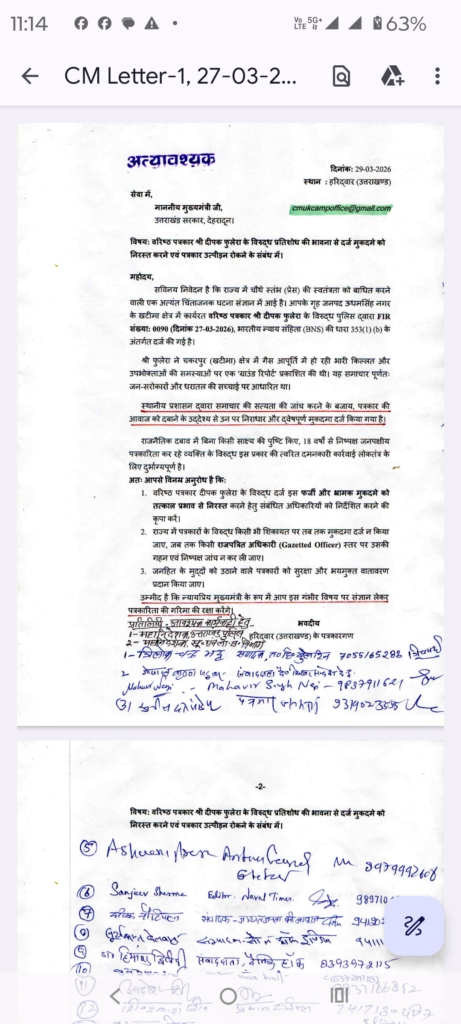 11:14
Vo LTE 5G+ 63%
CM Letter-1, 27-03-2...
अत्यावश्यक
दिनांक: 29-03-2026
स्थान : हरिद्वार (उत्तराखण्ड)
सेवा में,
माननीय मुख्यमंत्री जी,
cmukcampoffice@gmail.com
उत्तराखंड सरकार, देहरादून।
विषय: वरिष्ठ पत्रकार श्री दीपक फुलेरा के विरुद्ध प्रतिशोध की भावना से दर्ज मुकदमे को
निरस्त करने एवं पत्रकार उत्पीड़न रोकने के संबंध में।
महोदय,
सविनय निवेदन है कि राज्य में चौथे स्तंभ (प्रेस) की स्वतंत्रता को बाधित करने
वाली एक अत्यंत चिंताजनक घटना संज्ञान में आई है। आपके गृह जनपद उधमसिंह नगर
के खटीमा क्षेत्र में कार्यरत वरिष्ठ पत्रकार श्री दीपक फुलेरा के विरुद्ध पुलिस द्वारा FIR
संख्या: 0090 (दिनांक 27-03-2026), भारतीय न्याय संहिता (BNS) की धारा 353(1) (b) के
अंतर्गत दर्ज की गई है।
श्री फुलेरा ने चकरपुर (खटीमा) क्षेत्र में गैस आपूर्ति में हो रही भारी किल्लत और
उपभोक्ताओं की समस्याओं पर एक 'ग्राउंड रिपोर्ट' प्रकाशित की थी। यह समाचार पूर्णतः
जन-सरोकारों और धरातल की सच्चाई पर आधारित था।
स्थानीय प्रशासन द्वारा समाचार की सत्यता की जांच करने के बजाय, पत्रकार की
आवाज को दबाने के उद्देश्य से उन पर निराधार और द्वेषपूर्ण मुकदमा दर्ज किया गया है।
राजनैतिक दबाव में बिना किसी साक्ष्य की पुष्टि किए, 18 वर्षों से निष्पक्ष जनपक्षीय
पत्रकारिता कर रहे व्यक्ति के विरुद्ध इस प्रकार की त्वरित दमनकारी कार्रवाई लोकतंत्र के
लिए दुर्भाग्यपूर्ण है।
अतः आपसे विनम्र अनुरोध है कि:
1. वरिष्ठ पत्रकार दीपक फुलेरा के विरुद्ध दर्ज इस फर्जी और भ्रामक मुकदमे को
तत्काल प्रभाव से निरस्त करने हेतु संबंधित अधिकारियों को निर्देशित करने की
कृपा करें।
2. राज्य में पत्रकारों के विरुद्ध किसी भी शिकायत पर तब तक मुकदमा दर्ज न किया
जाए, जब तक किसी राजपत्रित अधिकारी (Gazetted Officer) स्तर पर उसकी
गहन एवं निष्पक्ष जांच न कर ली जाए।
3. जनहित के मुद्दों को उठाने वाले पत्रकारों को सुरक्षा और भयमुक्त वातावरण
प्रदान किया जाए।
उम्मीद है कि न्यायप्रिय मुख्यमंत्री के रूप में आप इस गंभीर विषय पर संज्ञान लेकर
पत्रकारिता की गरिमा की रक्षा करेंगे।
प्रतिलिपि - आवश्यक कार्यवाही हेतु-
भवदीय
1- महानिदेशक, उत्तराखण्ड पुलिस
हरिद्वार (उत्तराखण्ड) के पत्रकारगण
2- महानिदेशक, सूचना
1- त्रिलोक चन्द्र भट्ट 7055165288
2
Mahavir Negi - Mahavir Singh Negi - 9837911621
3) 9319023505
-2-
विषय: वरिष्ठ पत्रकार श्री दीपक फुलेरा के विरुद्ध प्रतिशोध की भावना से दर्ज मुकदमे को
निरस्त करने एवं पत्रकार उत्पीड़न रोकने के संबंध में।
5
6 Sanjeev Sharma Editor. Naval Times. 989710
7
8 94111
9 डॉ हिमांशु द्विवेदी संवाददाता, 8393972115
10
11
12